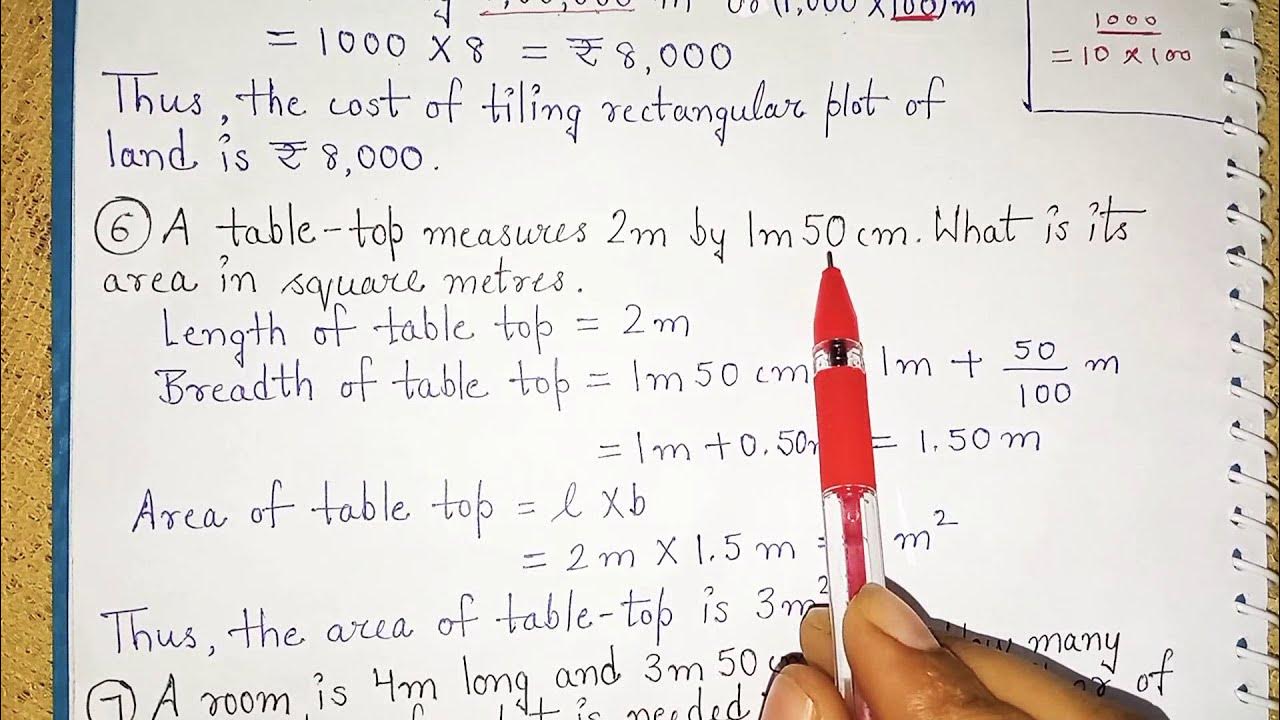 00,000 m or (1,000 × 100) m
1000
= 10 × 100
= 1000 × 8 = ₹ 8,000
Thus, the cost of tiling rectangular plot of
land is ₹ 8,000.
6 A table-top measures 2m by 1m 50 cm. What is its
area in square metres.
Length of table top = 2m
Breadth of table top = 1m 50 cm 1m + 50/100 m
= 1m + 0.50 = 1.50 m
Area of table top = l × b
= 2m × 1.5 m = m²
Thus, the area of table-top is 3m²
7 A room is 4m long and 3m 50 many
of
is needed